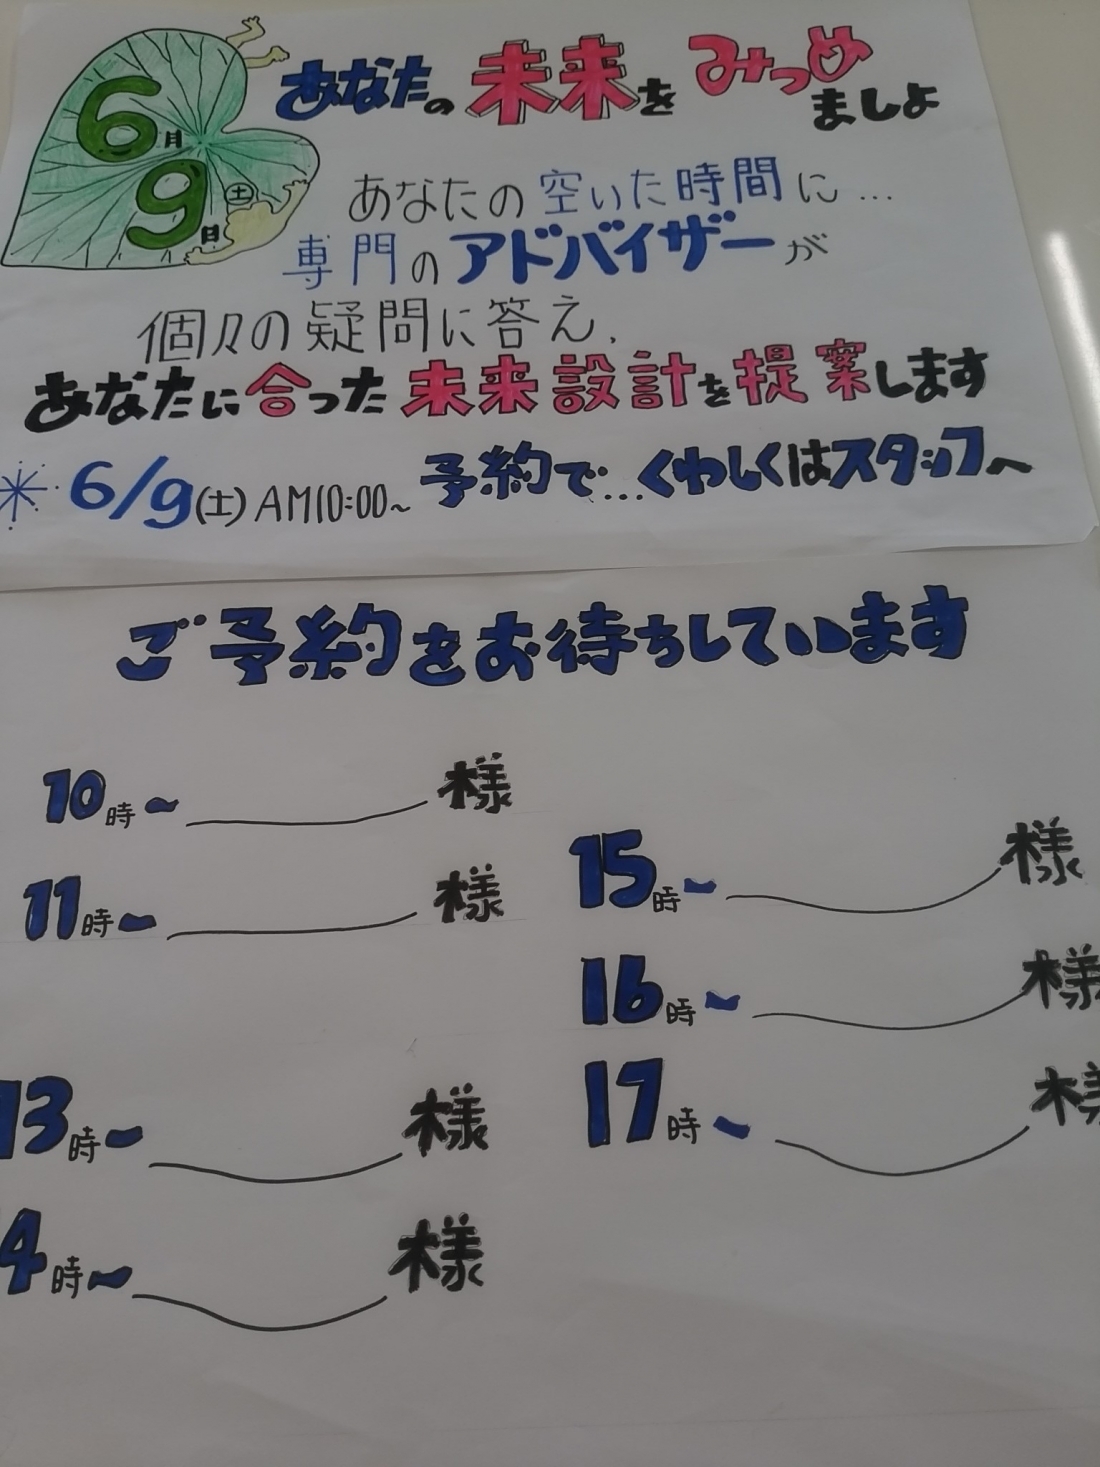 6月
9日 土
あなたの未来をみつめ
ましょ
あなたの空いた時間に…
専門のアドバイザーが
個々の疑問に答え、
あなたに合った未来設計を提案します
6/9(土)AM10:00~ 予約で…くわしくはスタッフへ
ご予約をお待ちしています
10時~ 様
11時~ 様
13時~ 様
4時~ 様
15時~ 様
16時~ 様
17時~ 様